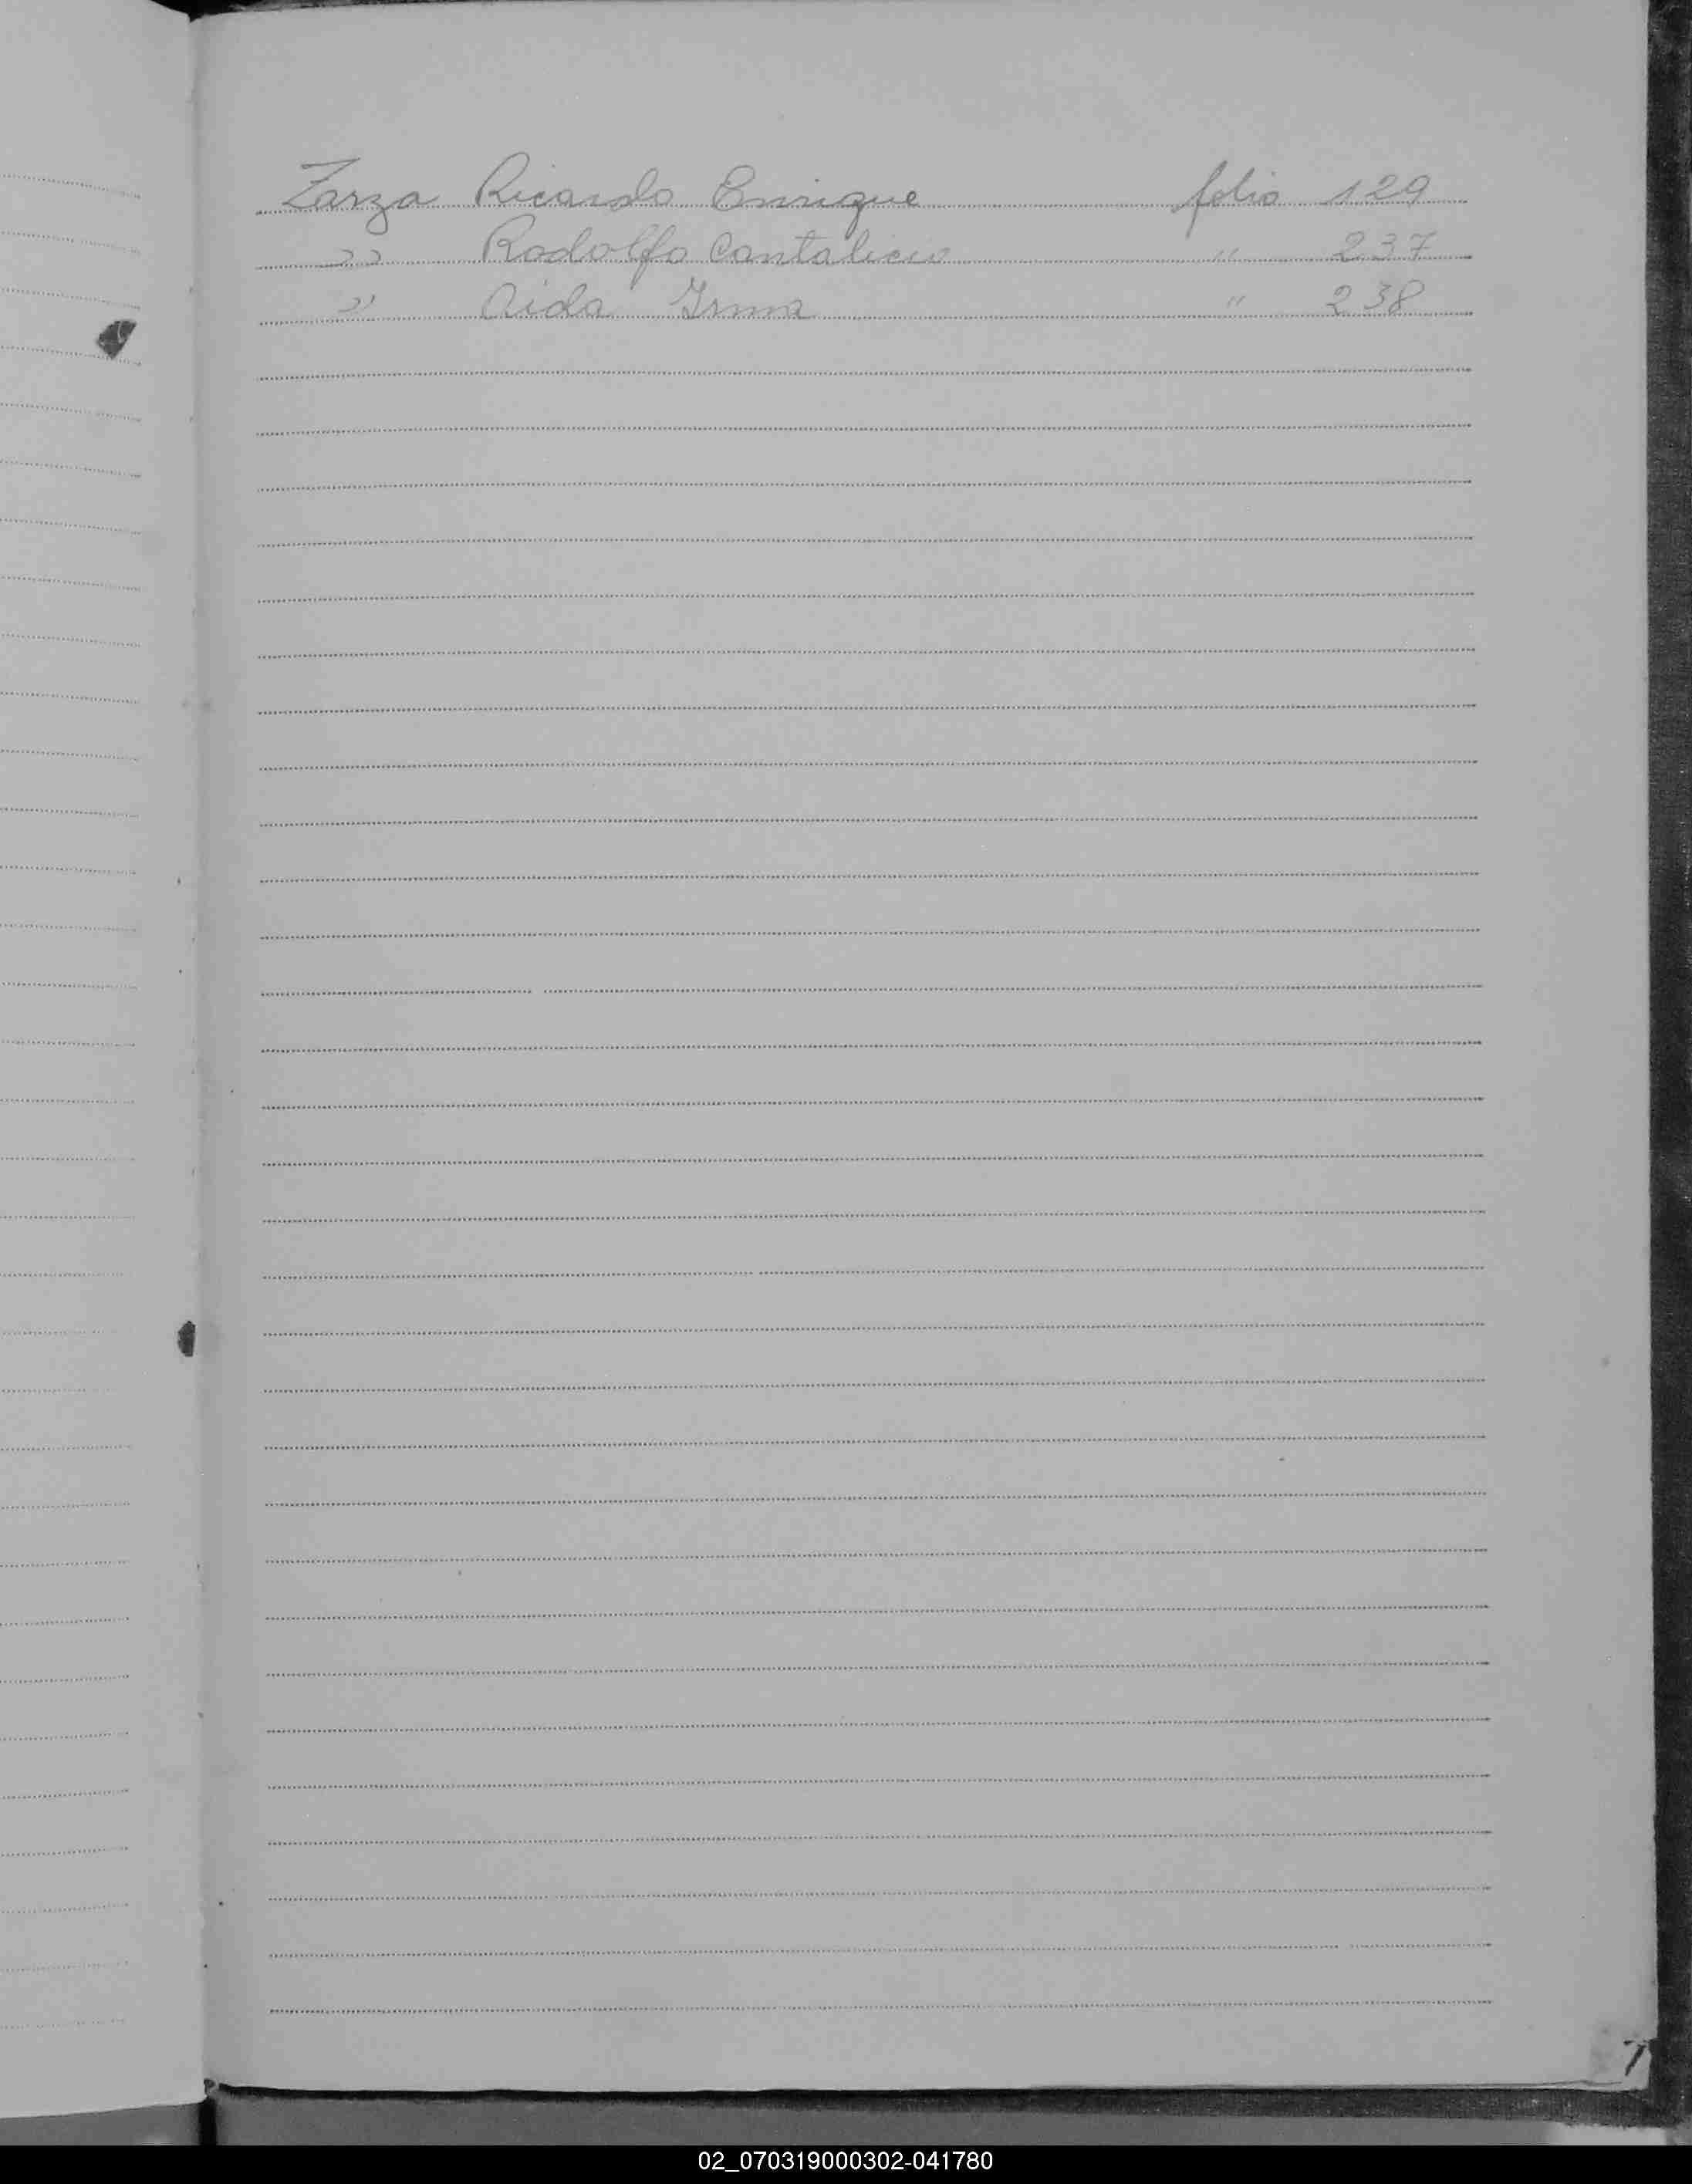 Zarza Ricardo Enrique folio 129
" Rodolfo Cantalicio " 237
" Aida Irma " 238
02_070319000302-041780